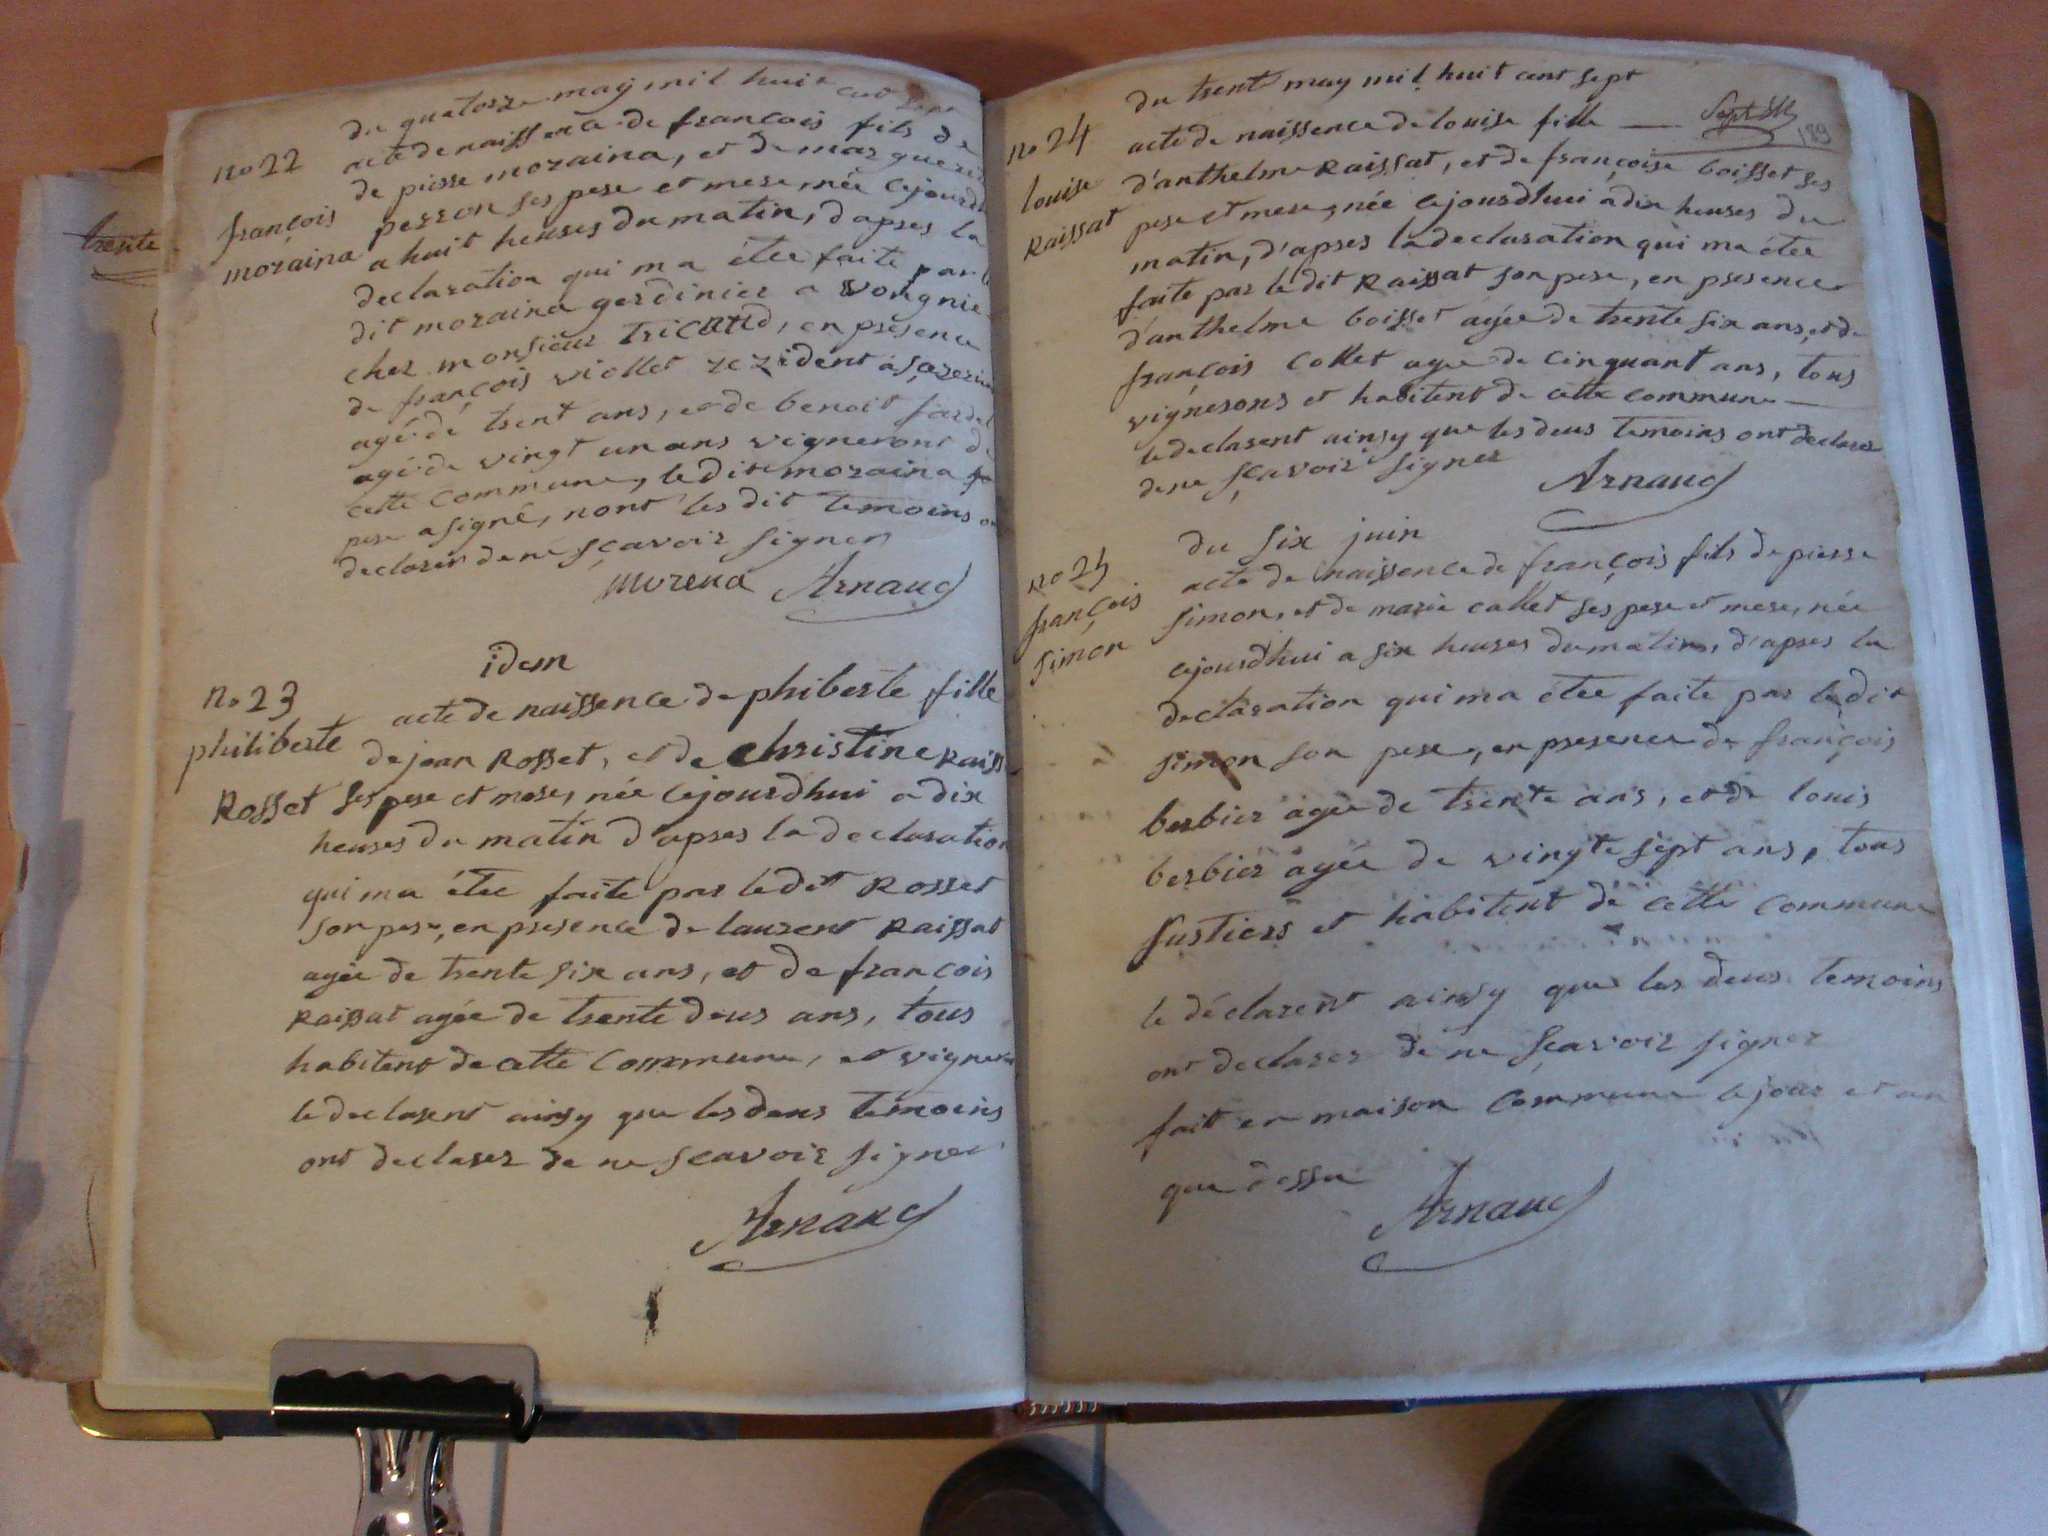 trente
du quatorze may mil huit cent sept
no 22 acte de naissence de françois fils de
de pierre moraina, et de marguerit
françois perron ses pere et mere née cejourdh
moraina a huit heures du matin, d'apres la
declaration qui ma étee faite par le
dit moraina gerdinier a vongnie
chez monsieur tricaud, en présence
de françois viollet rezident à
agé de trent ans, et de benoit fardel
agé de vingt un ans vigneront de
cette commune, le dit moraina
pere a signé, nont les dit temoins on
declarer de ne sçavoir signer
morena Arnaud
idem
no 23 acte de naissence de phiberte fille
philiberte de jean Rosset, et de christine Raiss
Rosset ses pere et mere, née cejourdhui a dix
heures du matin d'apres la declaration
qui ma étee faite par le dit Rosset
son pere, en presence de laurent Raissat
agée de trente six ans, et de françois
Raissat agée de trente deus ans, tous
habitent de cette commune, et vigneron
le declarent ainsy que les deus temoins
ont declarer de ne sçavoir signer
Arnaud
du trent may mil huit cent sept
no 24 acte de naissence de louise fille
189
louise d'anthelme Raissat, et de françoise boisset ses
Raissat pere et mere, née cejourdhui a dix heures du
matin, d'apres la declaration qui ma étee
faite par le dit Raissat son pere, en presence
d'anthelme boisset agée de trente six ans, et de
françois collet agee de cinquant ans, tous
vignerons et habitent de cette commune
le declarent ainsy que les deus temoins ont declarer
de ne sçavoir signer Arnaud
du six juin
no 25 acte de naissence de françois fils de pierre
françois simon, et de marie callet ses pere et mere, née
simon cejourdhui a six heures du matin, d'apres la
declaration qui ma étee faite par le dit
simon son pere, en presence de françois
berbier agée de trente ans, et de louis
berbier agée de vingte sept ans, tous
sustiers et habitent de cette commune
le déclarent ainsy que les deus temoins
ont declarer de ne sçavoir signer
fait en maison commune le jour et an
que dessu Arnaud